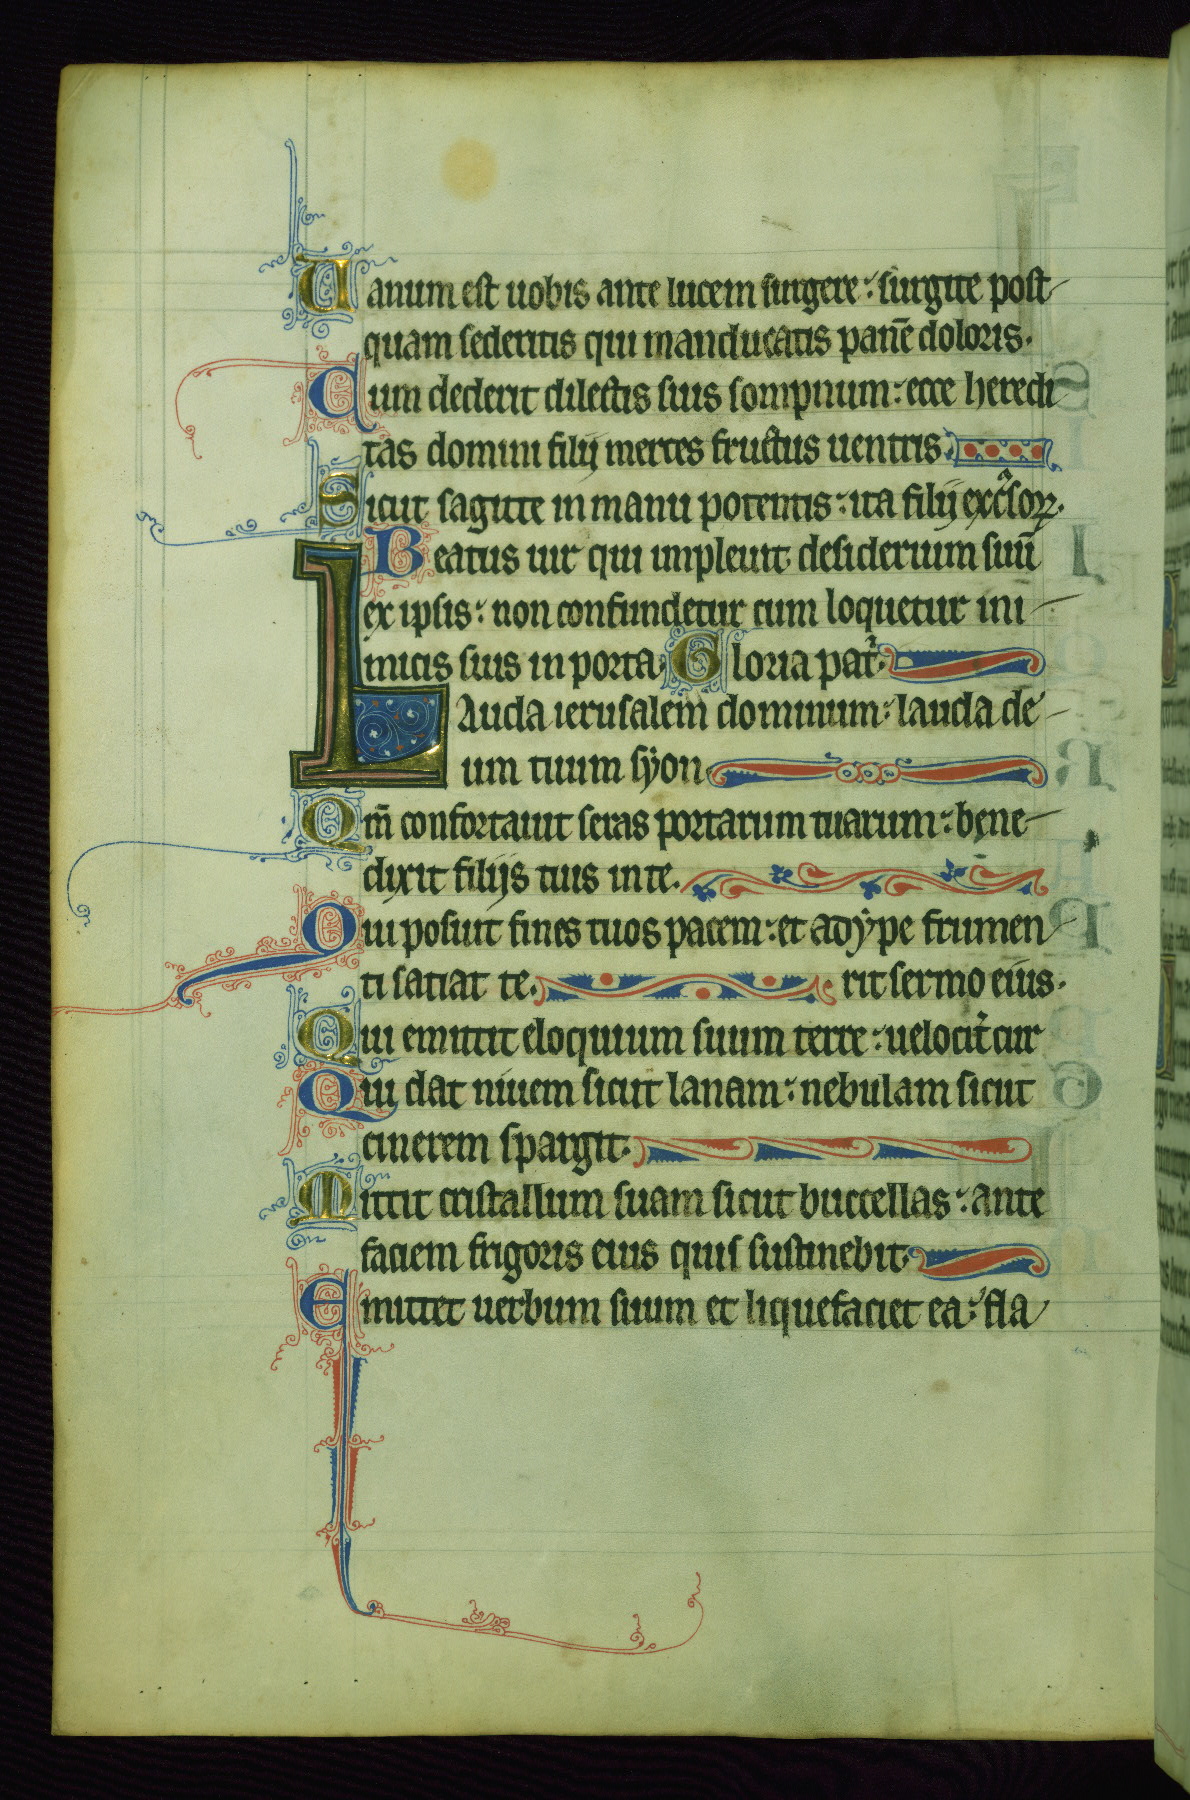 Uanum est uobis ante lucem surgere: surgite post
quam sederitis qui manducatis panē doloris.
Cum dederit dilectis suis sompnum: ecce heredi
tas domini filij merces fructus uentris.
Sicut sagitte in manu potentis: ita filij excussoꝝ.
Beatus uir qui impleuit desiderium suū
ex ipsis: non confundetur cum loquetur ini
micis suis in porta. Gloria pat̉.
LAuda ierusalem dominum: lauda de
um tuum syon
Qm̄ confortauit seras portarum tuarum: bene
dixit filijs tuis in te.
Qui posuit fines tuos pacem: et adype frumen
ti satiat te. rit sermo eius.
Qui emittit eloquium suum terre: uelocit̉ cur
Qui dat niuem sicut lanam: nebulam sicut
cinerem spargit.
Mittit cristallum suam sicut buccellas: ante
faciem frigoris eius quis sustinebit.
Emittet uerbum suum et liquefaciet ea: fla